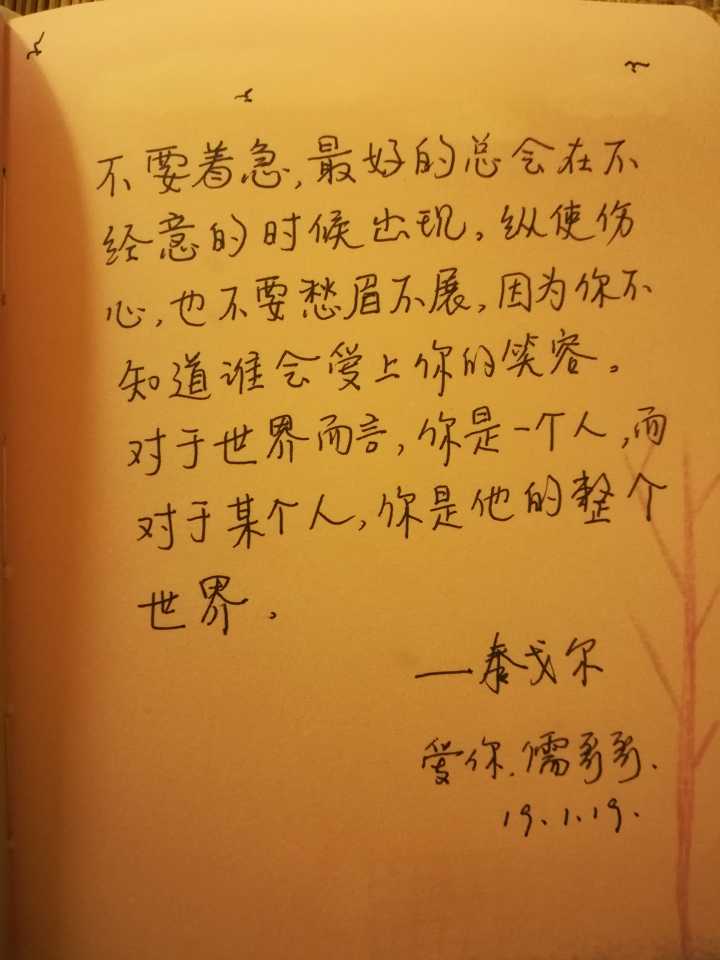 不要着急,最好的总会在不
经意的时候出现。纵使伤
心,也不要愁眉不展,因为你不
知道谁会爱上你的笑容。
对于世界而言,你是一个人,而
对于某个人,你是他的整个
世界。
—泰戈尔
爱你.儒哥哥.
19.1.19.